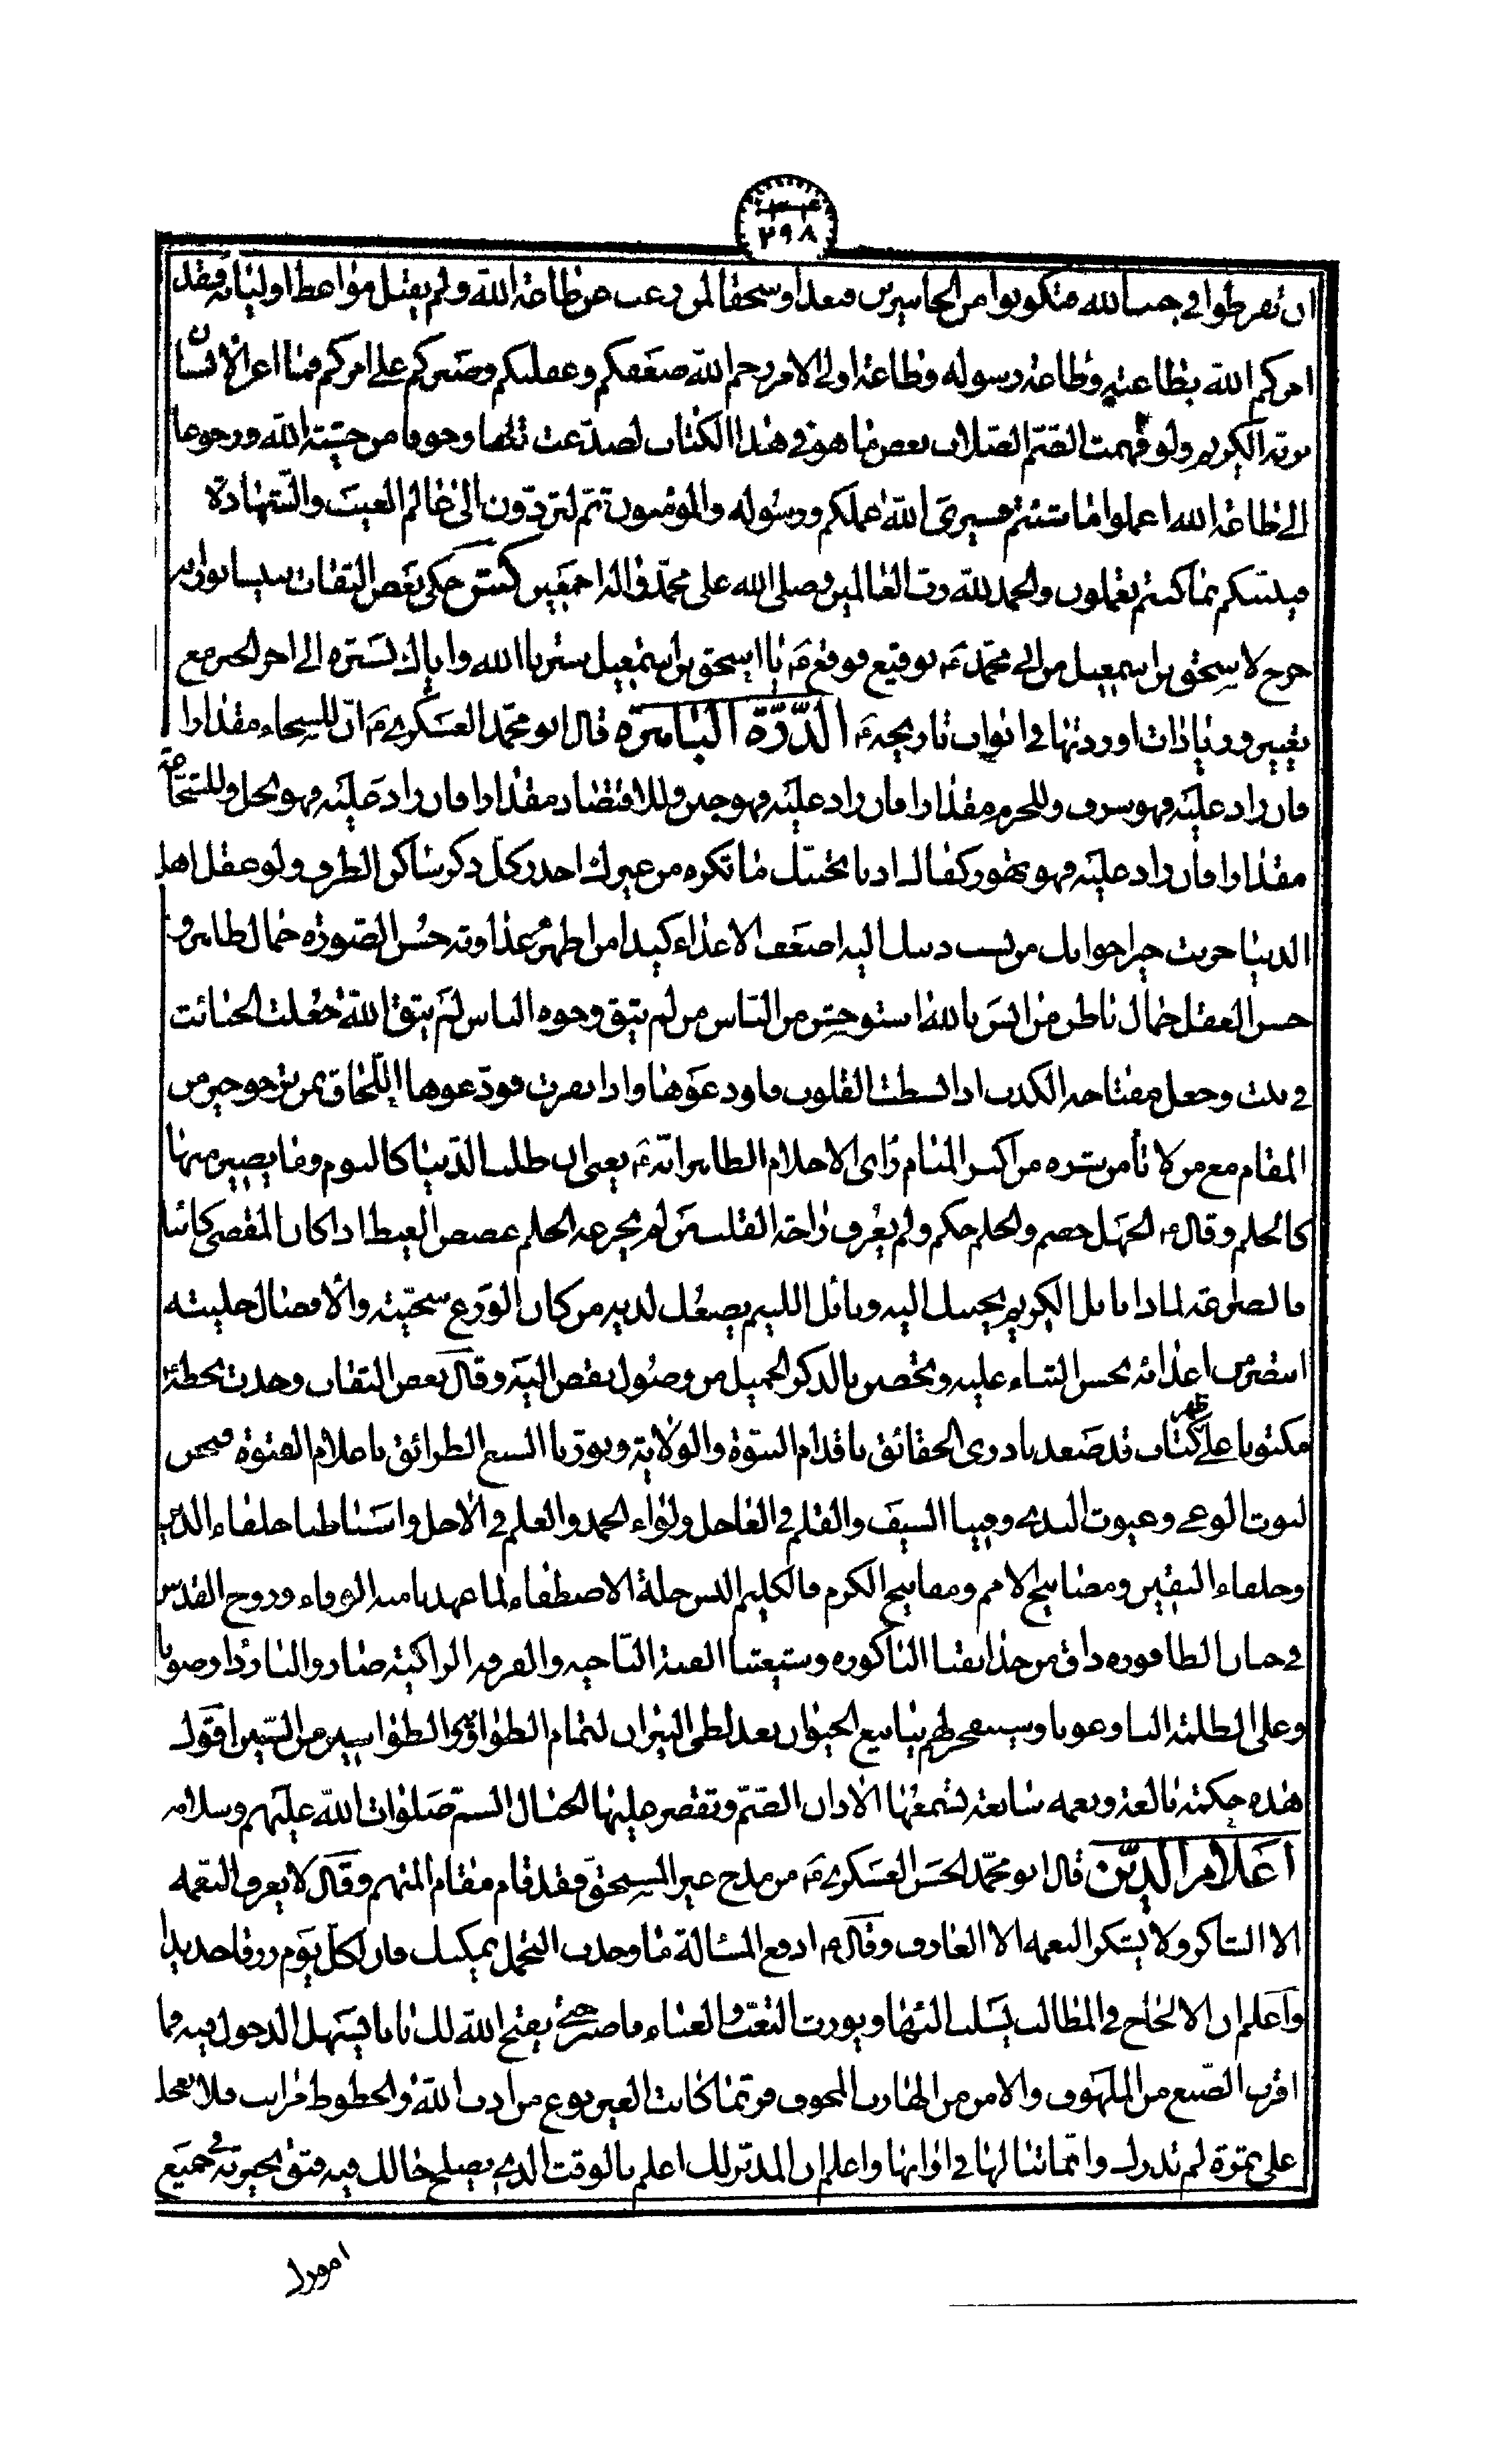 ٢٩٨
ان تفرطوا في جنب الله فتكونوا من الخاسرين فبعدا وسحقا لمن رغب عن طاعة الله ولم يقبل مواعظ اوليائه فقد
امركم الله بطاعته وطاعة رسوله وطاعة اولي الامر رحم الله ضعفكم وغفلتكم وصبركم على امركم فما اغر الانسان
بربه الكريم ولو فهمت الصم الصلاب بعض ما هو في هذا الكتاب لتصدعت قلقا وخوفا من خشية الله ورجوعا
الى طاعة الله اعملوا ما شئتم فسيرى الله عملكم ورسوله والمؤمنون ثم لتردون الى عالم الغيب والشهادة
فينبئكم بما كنتم تعملون والحمد لله رب العالمين وصلى الله على محمد واله اجمعين كش حكى بعض الثقات بنيسابور انه
خرج لاسحق بن اسمعيل من ابي محمد ع توقيع فوقع ع يا اسحق بن اسمعيل سترنا الله واياك بستره الى اخر الخبر مع
تغيير وزيادات اوردتها في ابواب تاريخه ع الدرة الباهرة قال ابو محمد العسكري ع ان للسخاء مقدارا
فان زاد عليه فهو سرف وللحزم مقدارا فان زاد عليه فهو جبن وللاقتصاد مقدارا فان زاد عليه فهو بخل وللشجاعة
مقدارا فان زاد عليه فهو تهور كفاك ادبا تجنبك ما تكره من غيرك احذر كل ذكي ساكن الطرف ولو عقل اهل
الدنيا خربت خير اخوانك من نسب ذنبك اليه اضعف الاعداء كيدا من اظهر عداوته حسن الصورة جمال ظاهر و
حسن العقل جمال باطن من انس بالله استوحش من الناس من لم يتق وجوه الناس لم يتق الله جعلت الخبائث
في بيت وجعل مفتاحه الكذب اذا نشطت القلوب فاودعوها واذا نفرت فودعوها اللحاق بمن ترجو خير من
المقام مع من لا تأمن شره من اكثر المنام راى الاحلام الظاهر انه ع يعني ان طلب الدنيا كالنوم وما يصير منها
كالحلم وقال ع الجهل خصم والحلم حكم ولم يعرف راحة القلب من لم يجرعه الحلم غصص الغيظ اذا كان المقضي كائنا
فالضراعة لماذا نائل الكريم يحببك اليه ونائل اللئيم يضعك لديه من كان الورع سجيته والافضال حليته
انتصر من اعدائه بحسن الثناء عليه وتحصن بالذكر الجميل من وصول نقص اليه وقال بعض الثقات وجدت بخطه
مكتوبا على ظهر كتاب قد صعدنا ذرى الحقائق باقدام النبوة والولاية ونورنا السبع الطرائق باعلام الفتوة فنحن
ليوث الوغى وغيوث الندى وفينا السيف والقلم في العاجل ولواء الحمد والعلم في الاجل واسباطنا خلفاء الدين
وحلفاء اليقين ومصابيح الامم ومفاتيح الكرم فالكليم البس حلة الاصطفاء لما عهدنا منه الوفاء وروح القدس
في جنان الصاقورة ذاق من حدائقنا الباكورة وشيعتنا الفئة الناجية والفرقة الزاكية صاروا لنا ردءا وصونا
وعلى الظلمة البا وعونا وسينفجر لهم ينابيع الحيوان بعد لظى النيران لتمام الطواوية والطواسين من السنين اقول
هذه حكمة بالغة ونعمة سابغة تسمعها الاذان الصم وتقصر عليها الجبال الشم صلوات الله عليهم وسلامه
اعلام الدين قال ابو محمد الحسن العسكري ع من مدح غير المستحق فقد قام مقام المتهم وقال لا يعرف النعمة
الا الشاكر ولا يشكر النعمة الا العارف وقال ع ادفع المسألة ما وجدت التحمل يمكنك فان لكل يوم رزقا جديدا
واعلم ان الالحاح في المطالب يسلب البهاء ويورث التعب والعناء فاصبر حتى يفتح الله لك بابا يسهل الدخول فيه فما
اقرب الصنيع من الملهوف والامن من الهارب المخوف فربما كانت الغير نوع من ادب الله والحظوظ مراتب فلا تعجل
على ثمرة لم تدرك وانما تنالها في اوانها واعلم ان المدبر لك اعلم بالوقت الذي يصلح حالك فيه فثق بخيرته في جميع
امورك